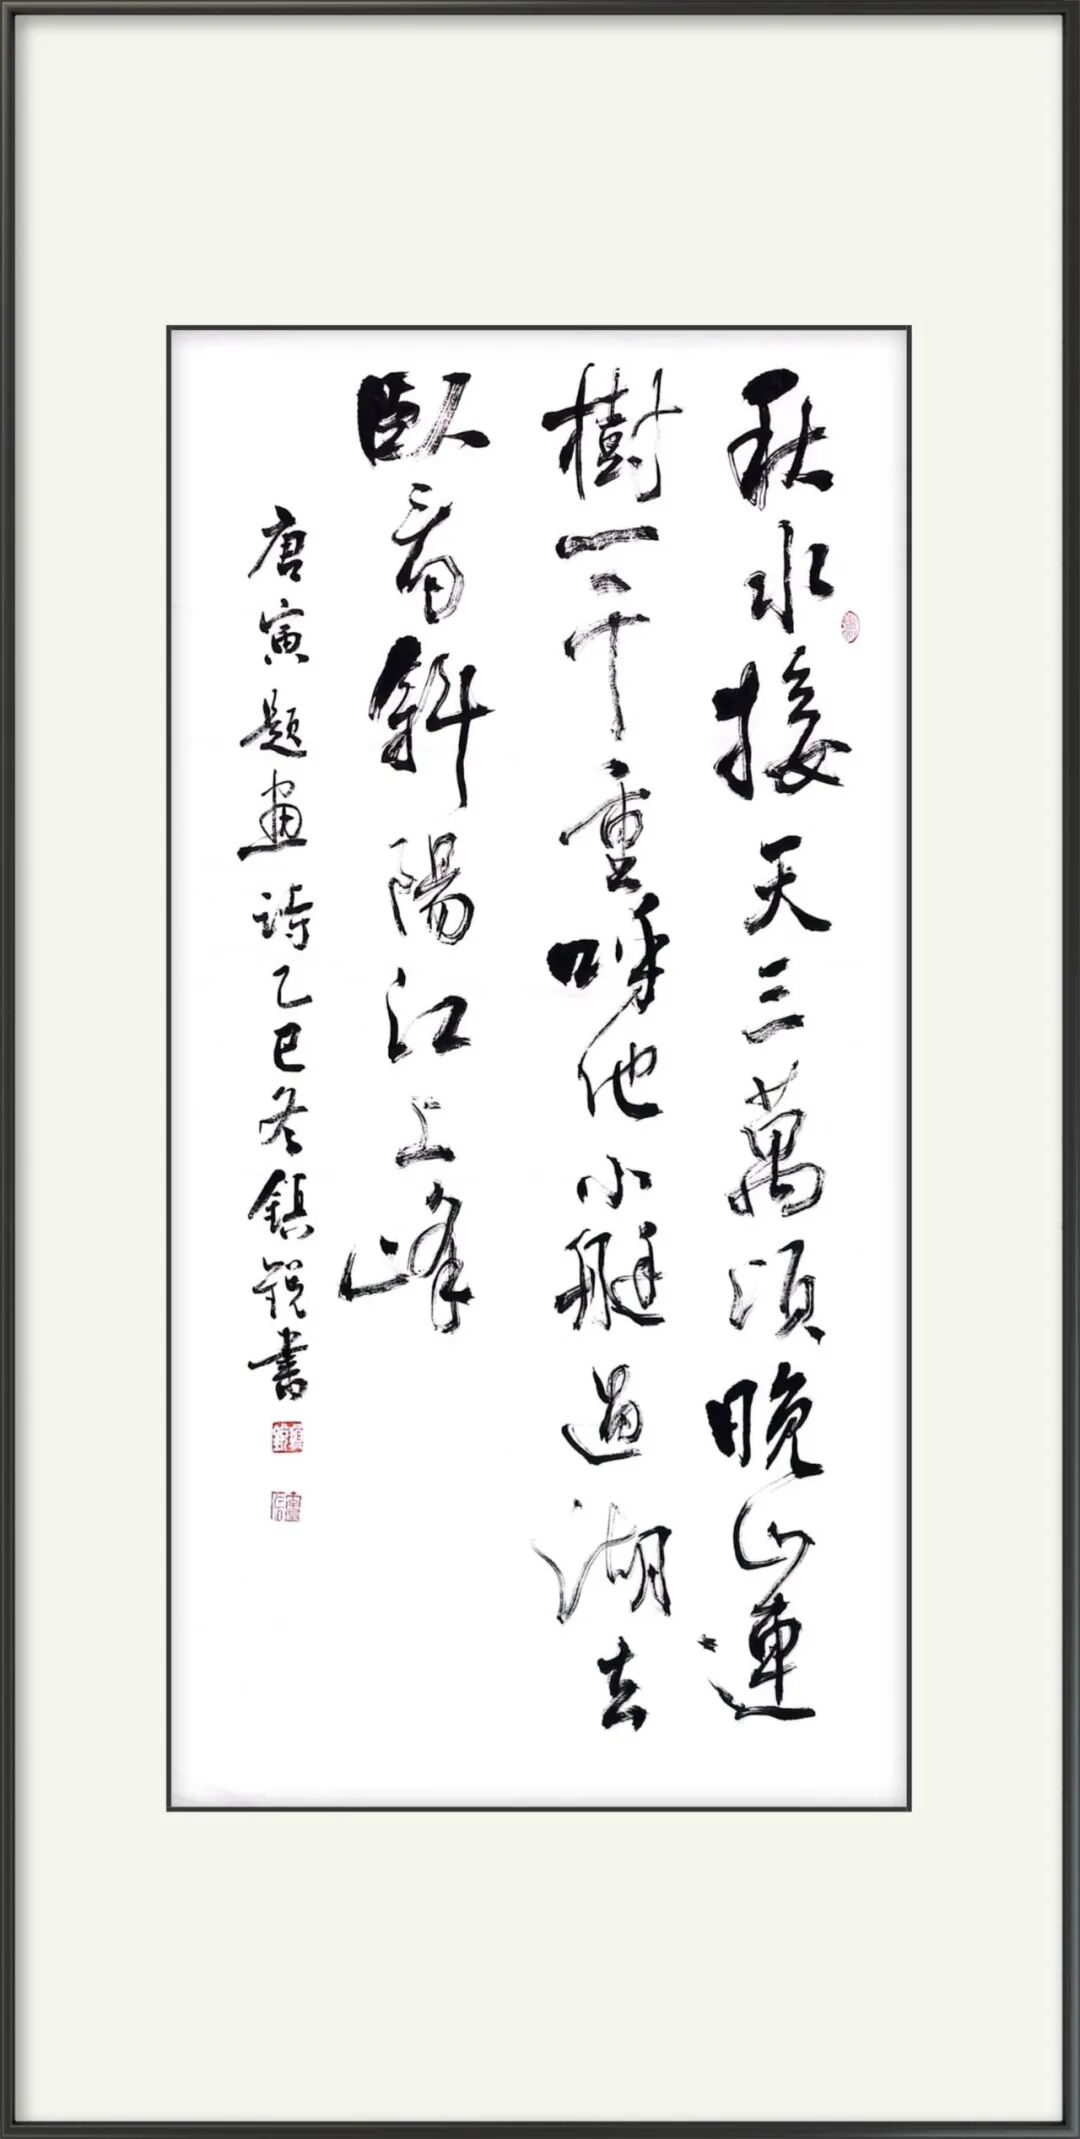 秋水接天三萬頃晚山連
樹一千重呼他小艇過湖去
臥看斜陽江上峰
唐寅題畫詩乙巳冬鎮銳書